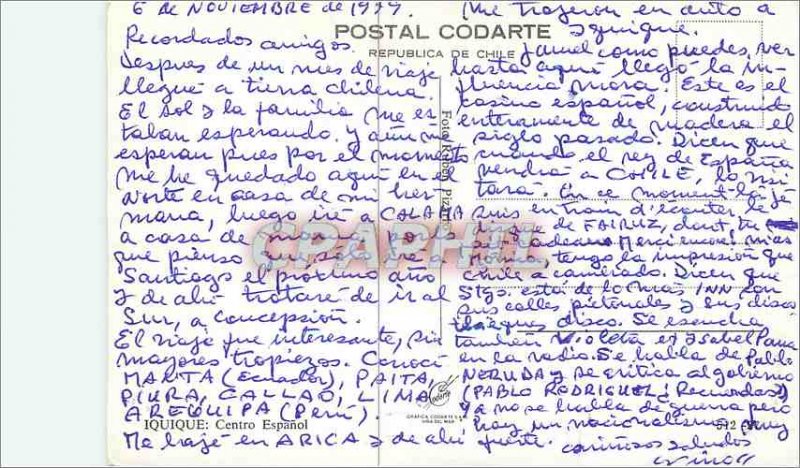 6 de NOVIEMBRE de 1979.
Recordados amigos:
Despues de un mes de viaje
llegué a tierra chilena.
El sol y la familia me es
taban esperando. y aún me
esperan pues por el momento
me he quedado aquí en el
Norte en casa de mi her
mana, luego iré a CALAMA
a casa de
que pienso que solo iré a
Santiago el próximo año
y de ahí trataré de ir al
Sur, a concepción.
El viaje fue interesante, sin
mayores tropiezos. Conocí
MANTA (Ecuador), PAITA,
PIURA, CALLAO, LIMA
AREQUIPA (Perú).
Me bajé en ARICA y de ahí
IQUIQUE: Centro Español
POSTAL CODARTE
REPUBLICA DE CHILE
Foto Rubén Pizarro
GRÁFICA CODARTE S.A.
VIÑA DEL MAR
512
(me trajeron en auto a
Iquique.
Jamel como puedes ver
hasta aquí llegó la in-
fluencia mora. Este es el
casino español, construido
enteramente de madera el
siglo pasado. Dicen que
cuando el rey de España
vendrá a CHILE, lo visi
tará. En ce moment-là je
suis entrain d'écouter le
disque de FAIRUZ, dont tu
Merci encore!
Mónica, tengo la impresión que
Chile a cambiado. Dicen que
Stgo. está de lo mas INN con
sus calles pictonales y sus disco
thèques disco. Se escucha
también Violeta et Isabel Parra
en la radio. Se habla de Pablo
NERUDA y se critica al gobierno
(PABLO RODRIGUEZ ¿Recuerdas?)
Ya no se habla de guerra pero
hay un nacionalismo muy
fuerte.
cariñosos saludos
CPARPHIL